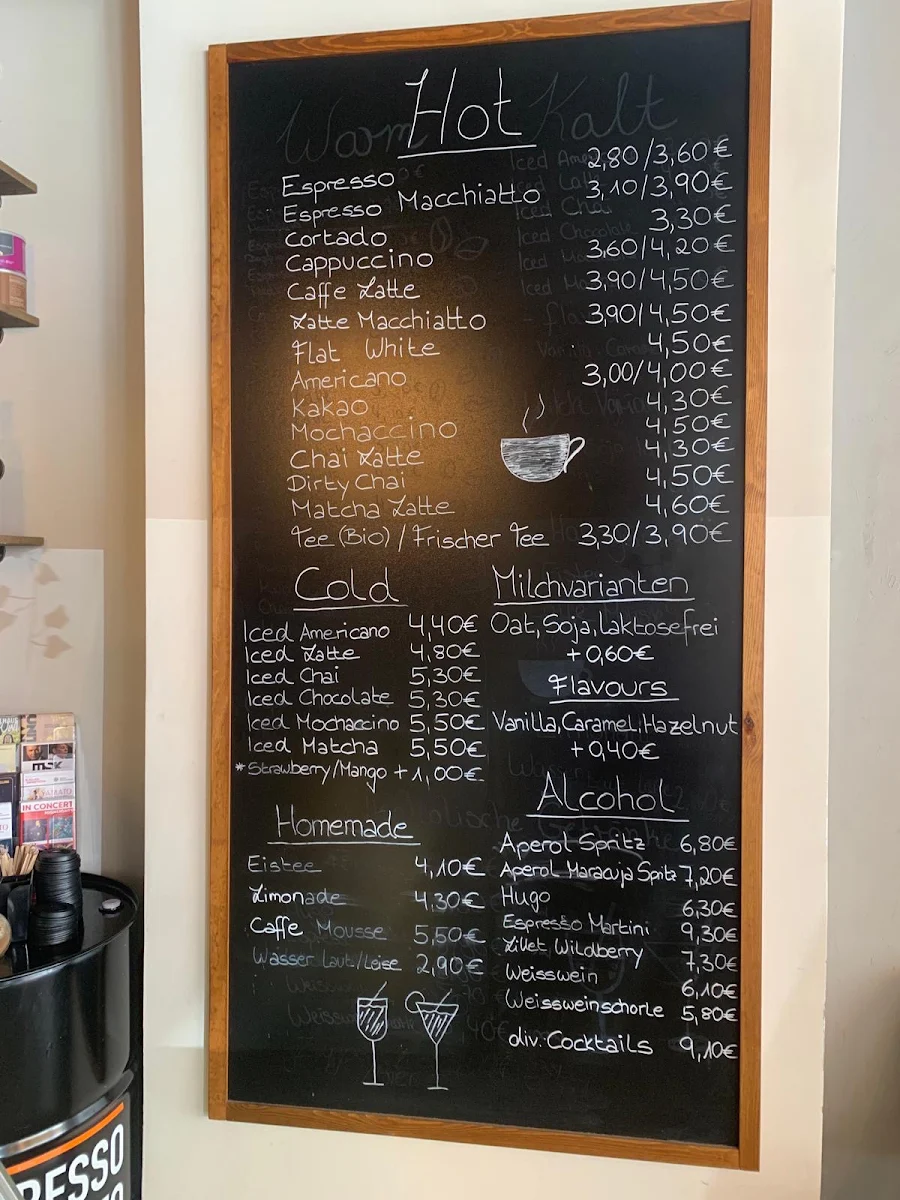 Hot
Warm Kalt
Espresso 2,80/3,60€
Espresso Macchiatto 3,10/3,90€
Cortado 3,30€
Cappuccino 3,60/4,20€
Caffe Latte 3,90/4,50€
Latte Macchiatto 3,90/4,50€
Flat White 4,50€
Americano 3,00/4,00€
Kakao 4,30€
Mochaccino 4,50€
Chai Latte 4,30€
Dirty Chai 4,50€
Matcha Latte 4,60€
Tee (Bio) / Frischer Tee 3,30/3,90€
Cold
Iced Americano 4,40€
Iced Latte 4,80€
Iced Chai 5,30€
Iced Chocolate 5,30€
Iced Mochaccino 5,50€
Iced Matcha 5,50€
*Strawberry/Mango +1,00€
Milchvarianten
Oat, Soja, Laktosefrei
+0,60€
Flavours
Vanilla, Caramel, Hazelnut
+0,40€
Homemade
Eistee 4,10€
Limonade 4,30€
Caffe Mousse 5,50€
Wasser Laut/Leise 2,90€
Alcohol
Aperol Spritz 6,80€
Aperol Maracuja Spritz 7,20€
Hugo 6,30€
Espresso Martini 9,30€
Lillet Wildberry 7,30€
Weisswein 6,10€
Weissweinschorle 5,80€
div. Cocktails 9,10€
IN CONCERT